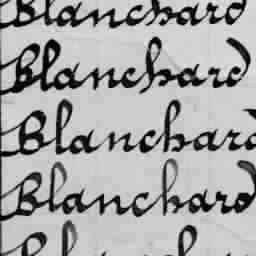 Blanchard
Blanchard
Blanchard
Blanchard